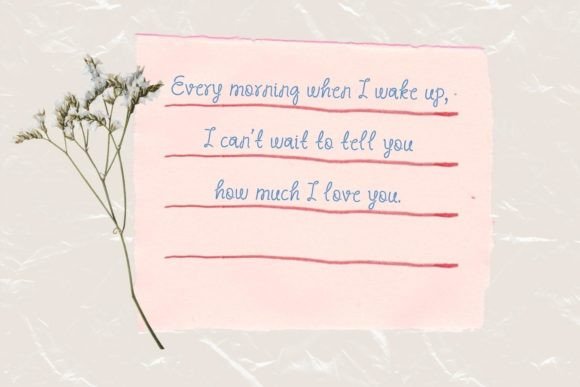 Every morning when I wake up,
I can't wait to tell you
how much I love you.